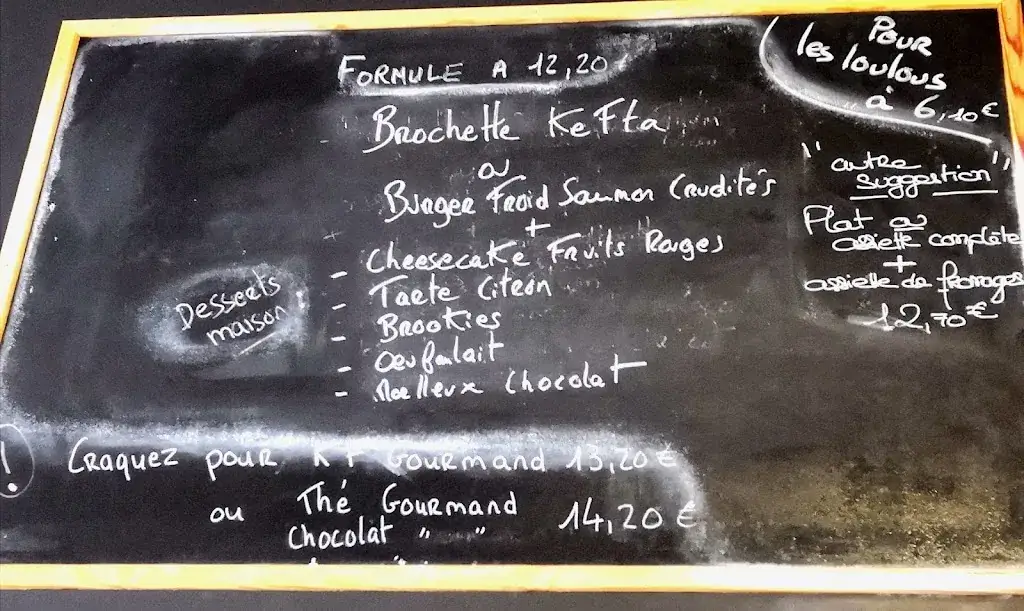 FORMULE A 12,20€
Brochette Kefta
ou
Burger Froid Saumon Crudités
+
- Cheesecake Fruits Rouges
- Tarte Citron
- Brookies
- Oeuf au lait
- Moelleux Chocolat
Desserts
maison
POUR
les loulous
à 6,10€
"autre
suggestion"
Plat ou
assiette complète
+
assiette de fromages
12,70€
! CRAQUEZ POUR KF GOURMAND 13,20€
ou Thé GOURMAND
Chocolat " " 14,20€